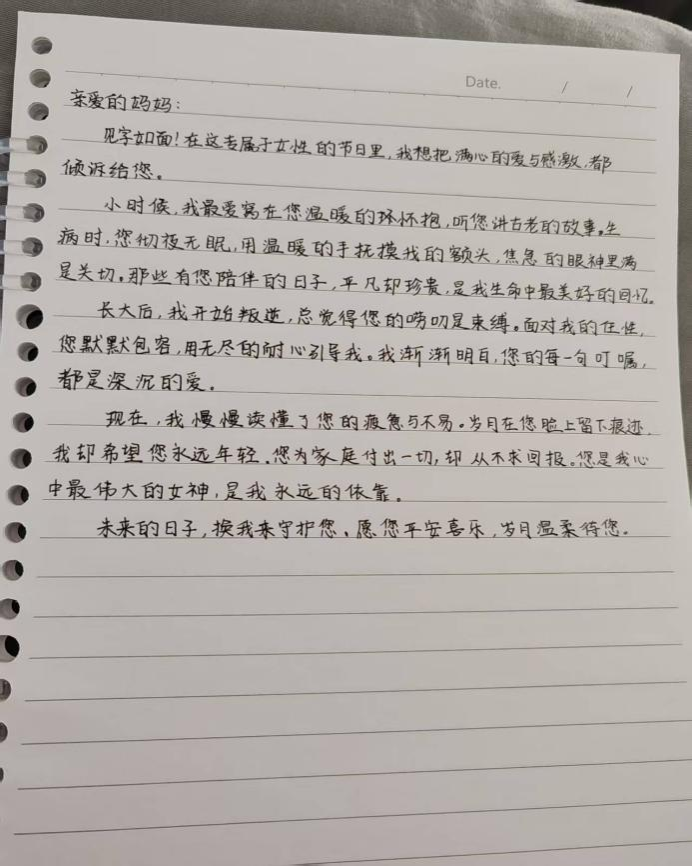 Date. / /
亲爱的妈妈：
见字如面！在这专属于女性的节日里，我想把满心的爱与感激，都
倾诉给您。
小时候，我最爱窝在您温暖的环怀抱，听您讲古老的故事。生
病时，您彻夜无眠，用温暖的手抚摸我的额头，焦急的眼神里满
是关切。那些有您陪伴的日子，平凡却珍贵，是我生命中最美好的回忆。
长大后，我开始叛逆，总觉得您的唠叨是束缚。面对我的任性，
您默默包容，用无尽的耐心引导我。我渐渐明白，您的每一句叮嘱，
都是深沉的爱。
现在，我慢慢读懂了您的疲惫与不易。岁月在您脸上留下痕迹，
我却希望您永远年轻。您为家庭付出一切，却从不求回报。您是我心
中最伟大的女神，是我永远的依靠。
未来的日子，换我来守护您。愿您平安喜乐，岁月温柔待您。